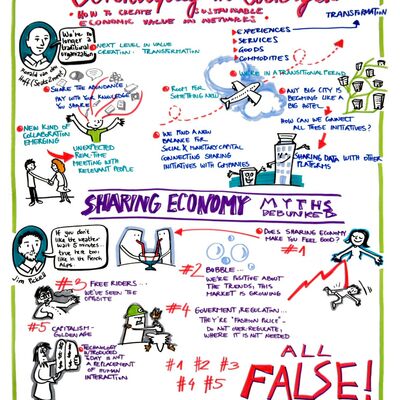 HOW TO CREATE SUSTAINABLE
ECONOMIC VALUE IN NETWORKS
TRANSFORMATION
EXPERIENCES
SERVICES
GOODS
COMMODITIES
We're no
longer a
traditional
organization
Ronald van den
Hoff (Seats2meet)
NEXT LEVEL IN VALUE
CREATION: TRANSFORMATION
WE'RE IN A TRANSITIONAL PERIOD
SHARE THE ABUNDANCE
PAY WITH YOUR KNOWLEDGE
YOU SHARE
ROOM FOR
SOMETHING NEW
ANY BIG CITY IS
BECOMING LIKE A
BIG HOTEL
HOW CAN WE CONNECT
ALL THESE INITIATIVES?
NEW KIND OF
COLLABORATION
EMERGING
UNEXPECTED
REAL-TIME
MEETING WITH
RELEVANT PEOPLE
WE FIND A NEW
BALANCE FOR
SOCIAL & MONETARY CAPITAL
CONNECTING SHARING
INITIATIVES WITH COMPANIES
SHARING DATA WITH OTHER
PLATFORMS
SHARING ECONOMY MYTHS
DEBUNKED
If you don't
like the weather
wait 5 minutes
true here too
like in the French
Alps
DOES SHARING ECONOMY
MAKE YOU FEEL GOOD?
#1
#2 BUBBLE...
WE'RE POSITIVE ABOUT
THE TRENDS, THIS
MARKET IS GROWING
#3 FREE RIDERS...
WE'VE SEEN THE
OPPOSITE
#4 GOVERMENT REGULATION...
THEY'RE "FASHION POLICE"
DO NOT OVER-REGULATE,
WHERE IT IS NOT NEEDED
#5 CAPITALISM-
GOLDEN AGE
TECHNOLOGY
INTRODUCED
TODAY IS NOT
A REPLACEMENT
OF HUMAN
INTERACTION
#1 #2 #3
#4 #5
ALL
FALSE!